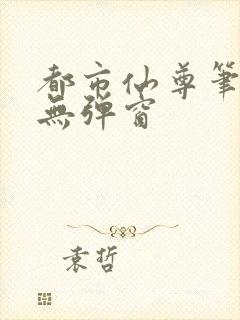 都市仙尊筆
無彈窗
袁哲